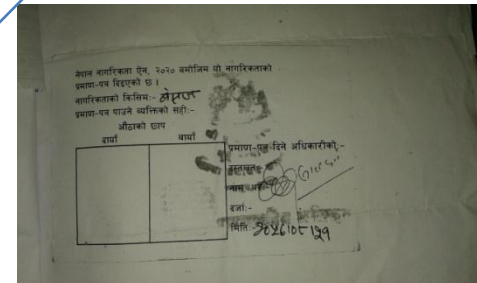 नेपाल नागरिकता ऐन, २०२० बमोजिम यो नागरिकताको
प्रमाण-पत्र दिइएको छ ।
नागरिकताको किसिम:- वंशज
प्रमाण-पत्र पाउने व्यक्तिको सही:-
औंठाको छाप
दायाँ बायाँ
प्रमाण-पत्र दिने अधिकारीको,-
दस्तखत:-
नाम
दर्जा:-
मिति:-